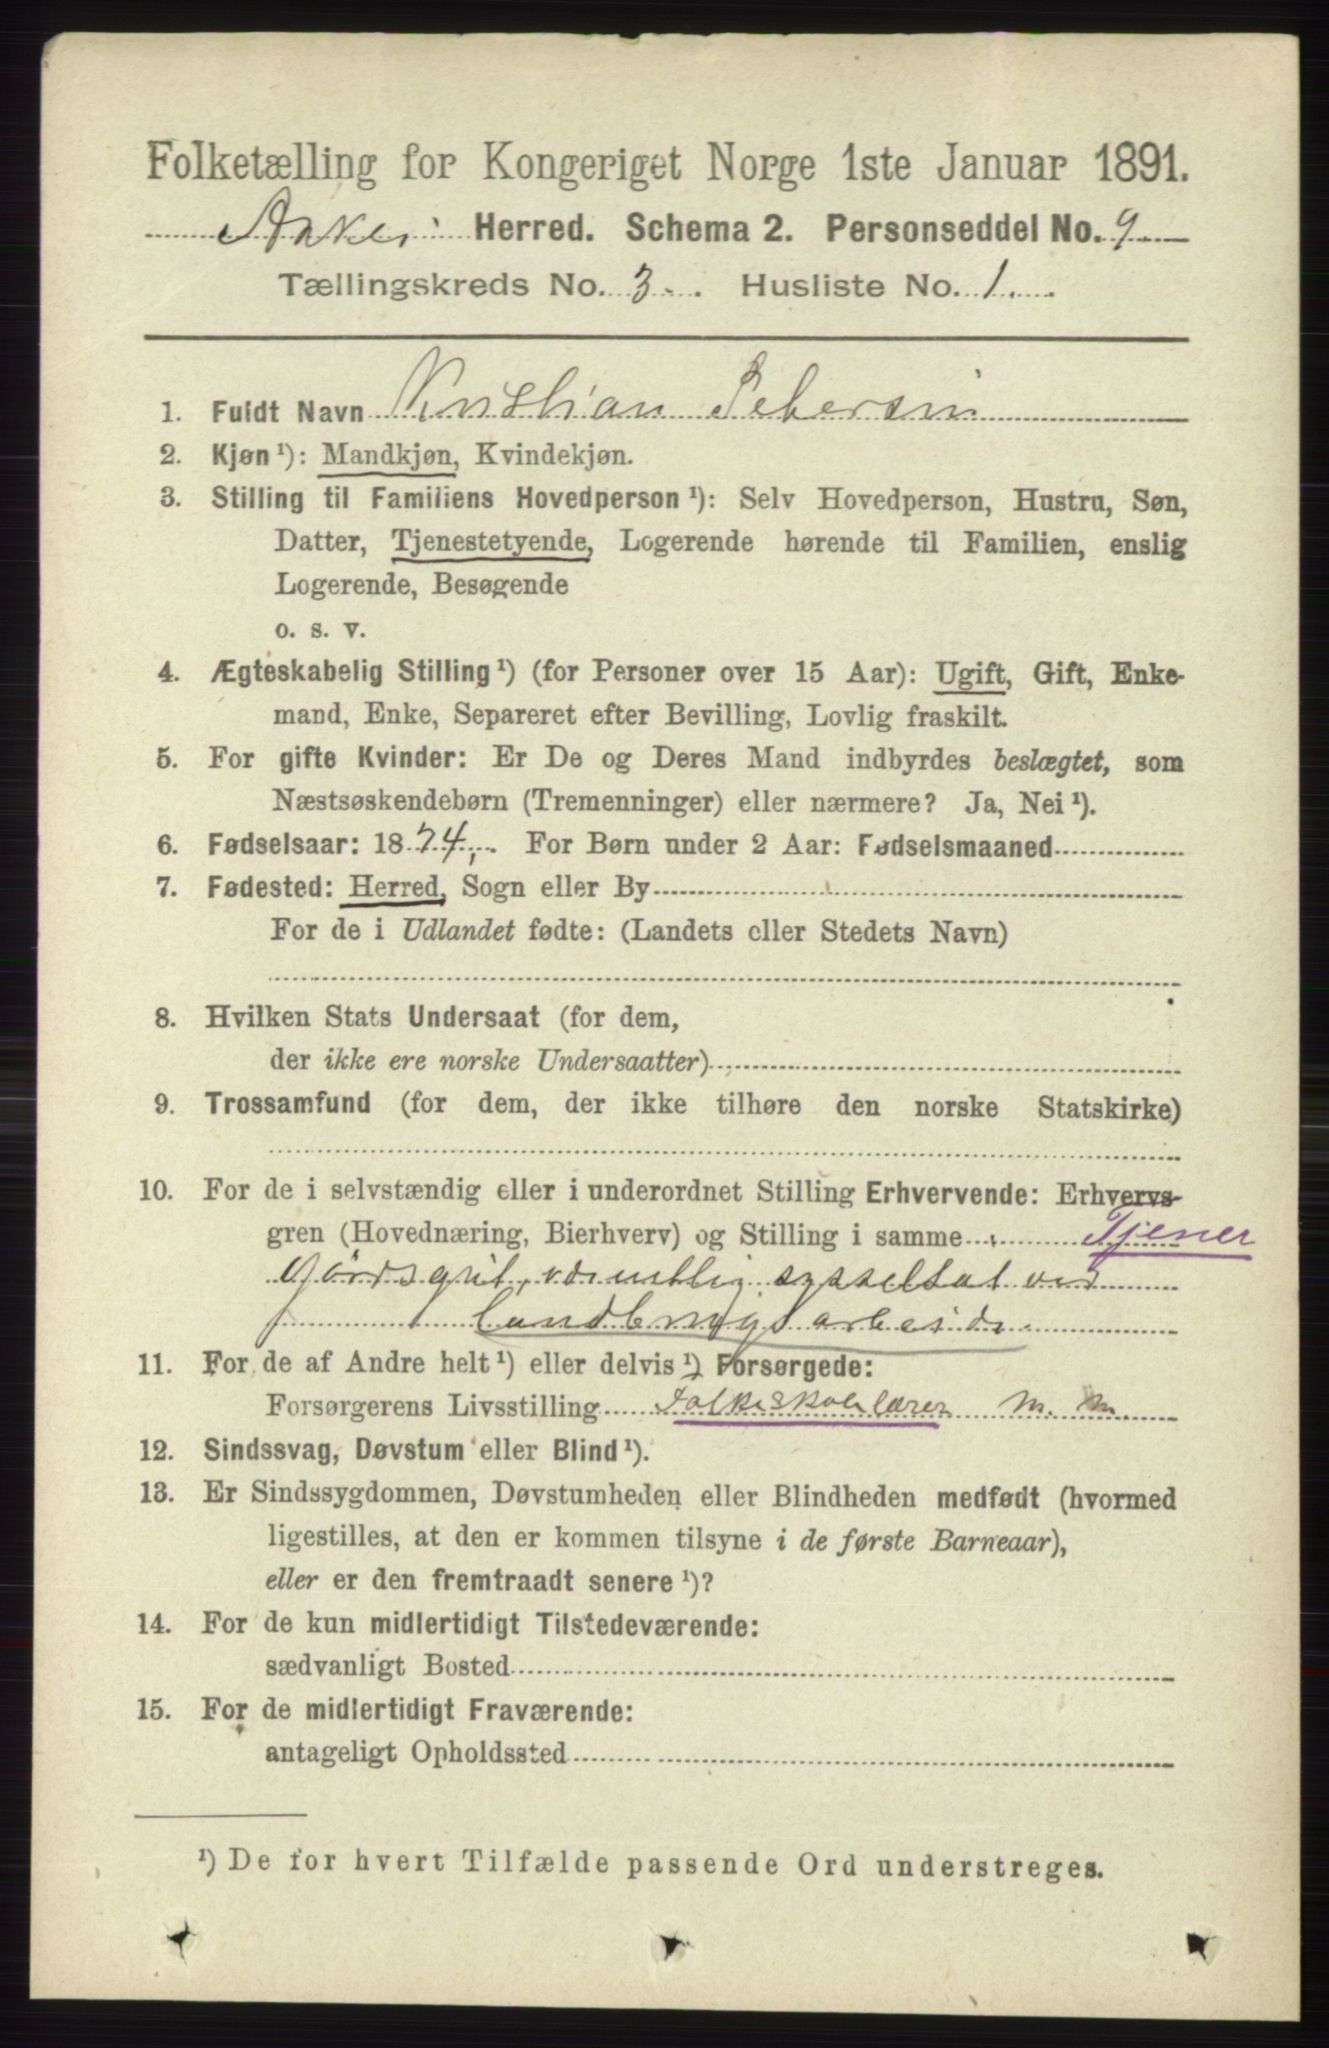 Folketælling for Kongeriget Norge 1ste Januar 1891.
Aker Herred. Schema 2. Personseddel No. 9
Tællingskreds No. 3. Husliste No. 1.
1. Fuldt Navn Kristian Petersen
2. Kjøn ¹): Mandkjøn, Kvindekjøn.
3. Stilling til Familiens Hovedperson ¹): Selv Hovedperson, Hustru, Søn,
Datter, Tjenestetyende, Logerende hørende til Familien, enslig
Logerende, Besøgende
o. s. v.
4. Ægteskabelig Stilling ¹) (for Personer over 15 Aar): Ugift, Gift, Enke-
mand, Enke, Separeret efter Bevilling, Lovlig fraskilt.
5. For gifte Kvinder: Er De og Deres Mand indbyrdes beslægtet, som
Næstsøskendebørn (Tremenninger) eller nærmere? Ja, Nei ¹).
6. Fødselsaar: 1874, For Børn under 2 Aar: Fødselsmaaned
7. Fødested: Herred, Sogn eller By
For de i Udlandet fødte: (Landets eller Stedets Navn)
8. Hvilken Stats Undersaat (for dem,
der ikke ere norske Undersaatter)
9. Trossamfund (for dem, der ikke tilhøre den norske Statskirke)
10. For de i selvstændig eller i underordnet Stilling Erhvervende: Erhvervs-
gren (Hovednæring, Bierhverv) og Stilling i samme Tjener
Gårdsgut, væsentlig sysselsat ved
landbrugsarbeide.
11. For de af Andre helt ¹) eller delvis ¹) Forsørgede:
Forsørgerens Livsstilling Folkeskolelærer m. m.
12. Sindssvag, Døvstum eller Blind ¹).
13. Er Sindssygdommen, Døvstumheden eller Blindheden medfødt (hvormed
ligestilles, at den er kommen tilsyne i de første Barneaar),
eller er den fremtraadt senere ¹)?
14. For de kun midlertidigt Tilstedeværende:
sædvanligt Bosted
15. For de midlertidigt Fraværende:
antageligt Opholdssted
¹) De for hvert Tilfælde passende Ord understreges.